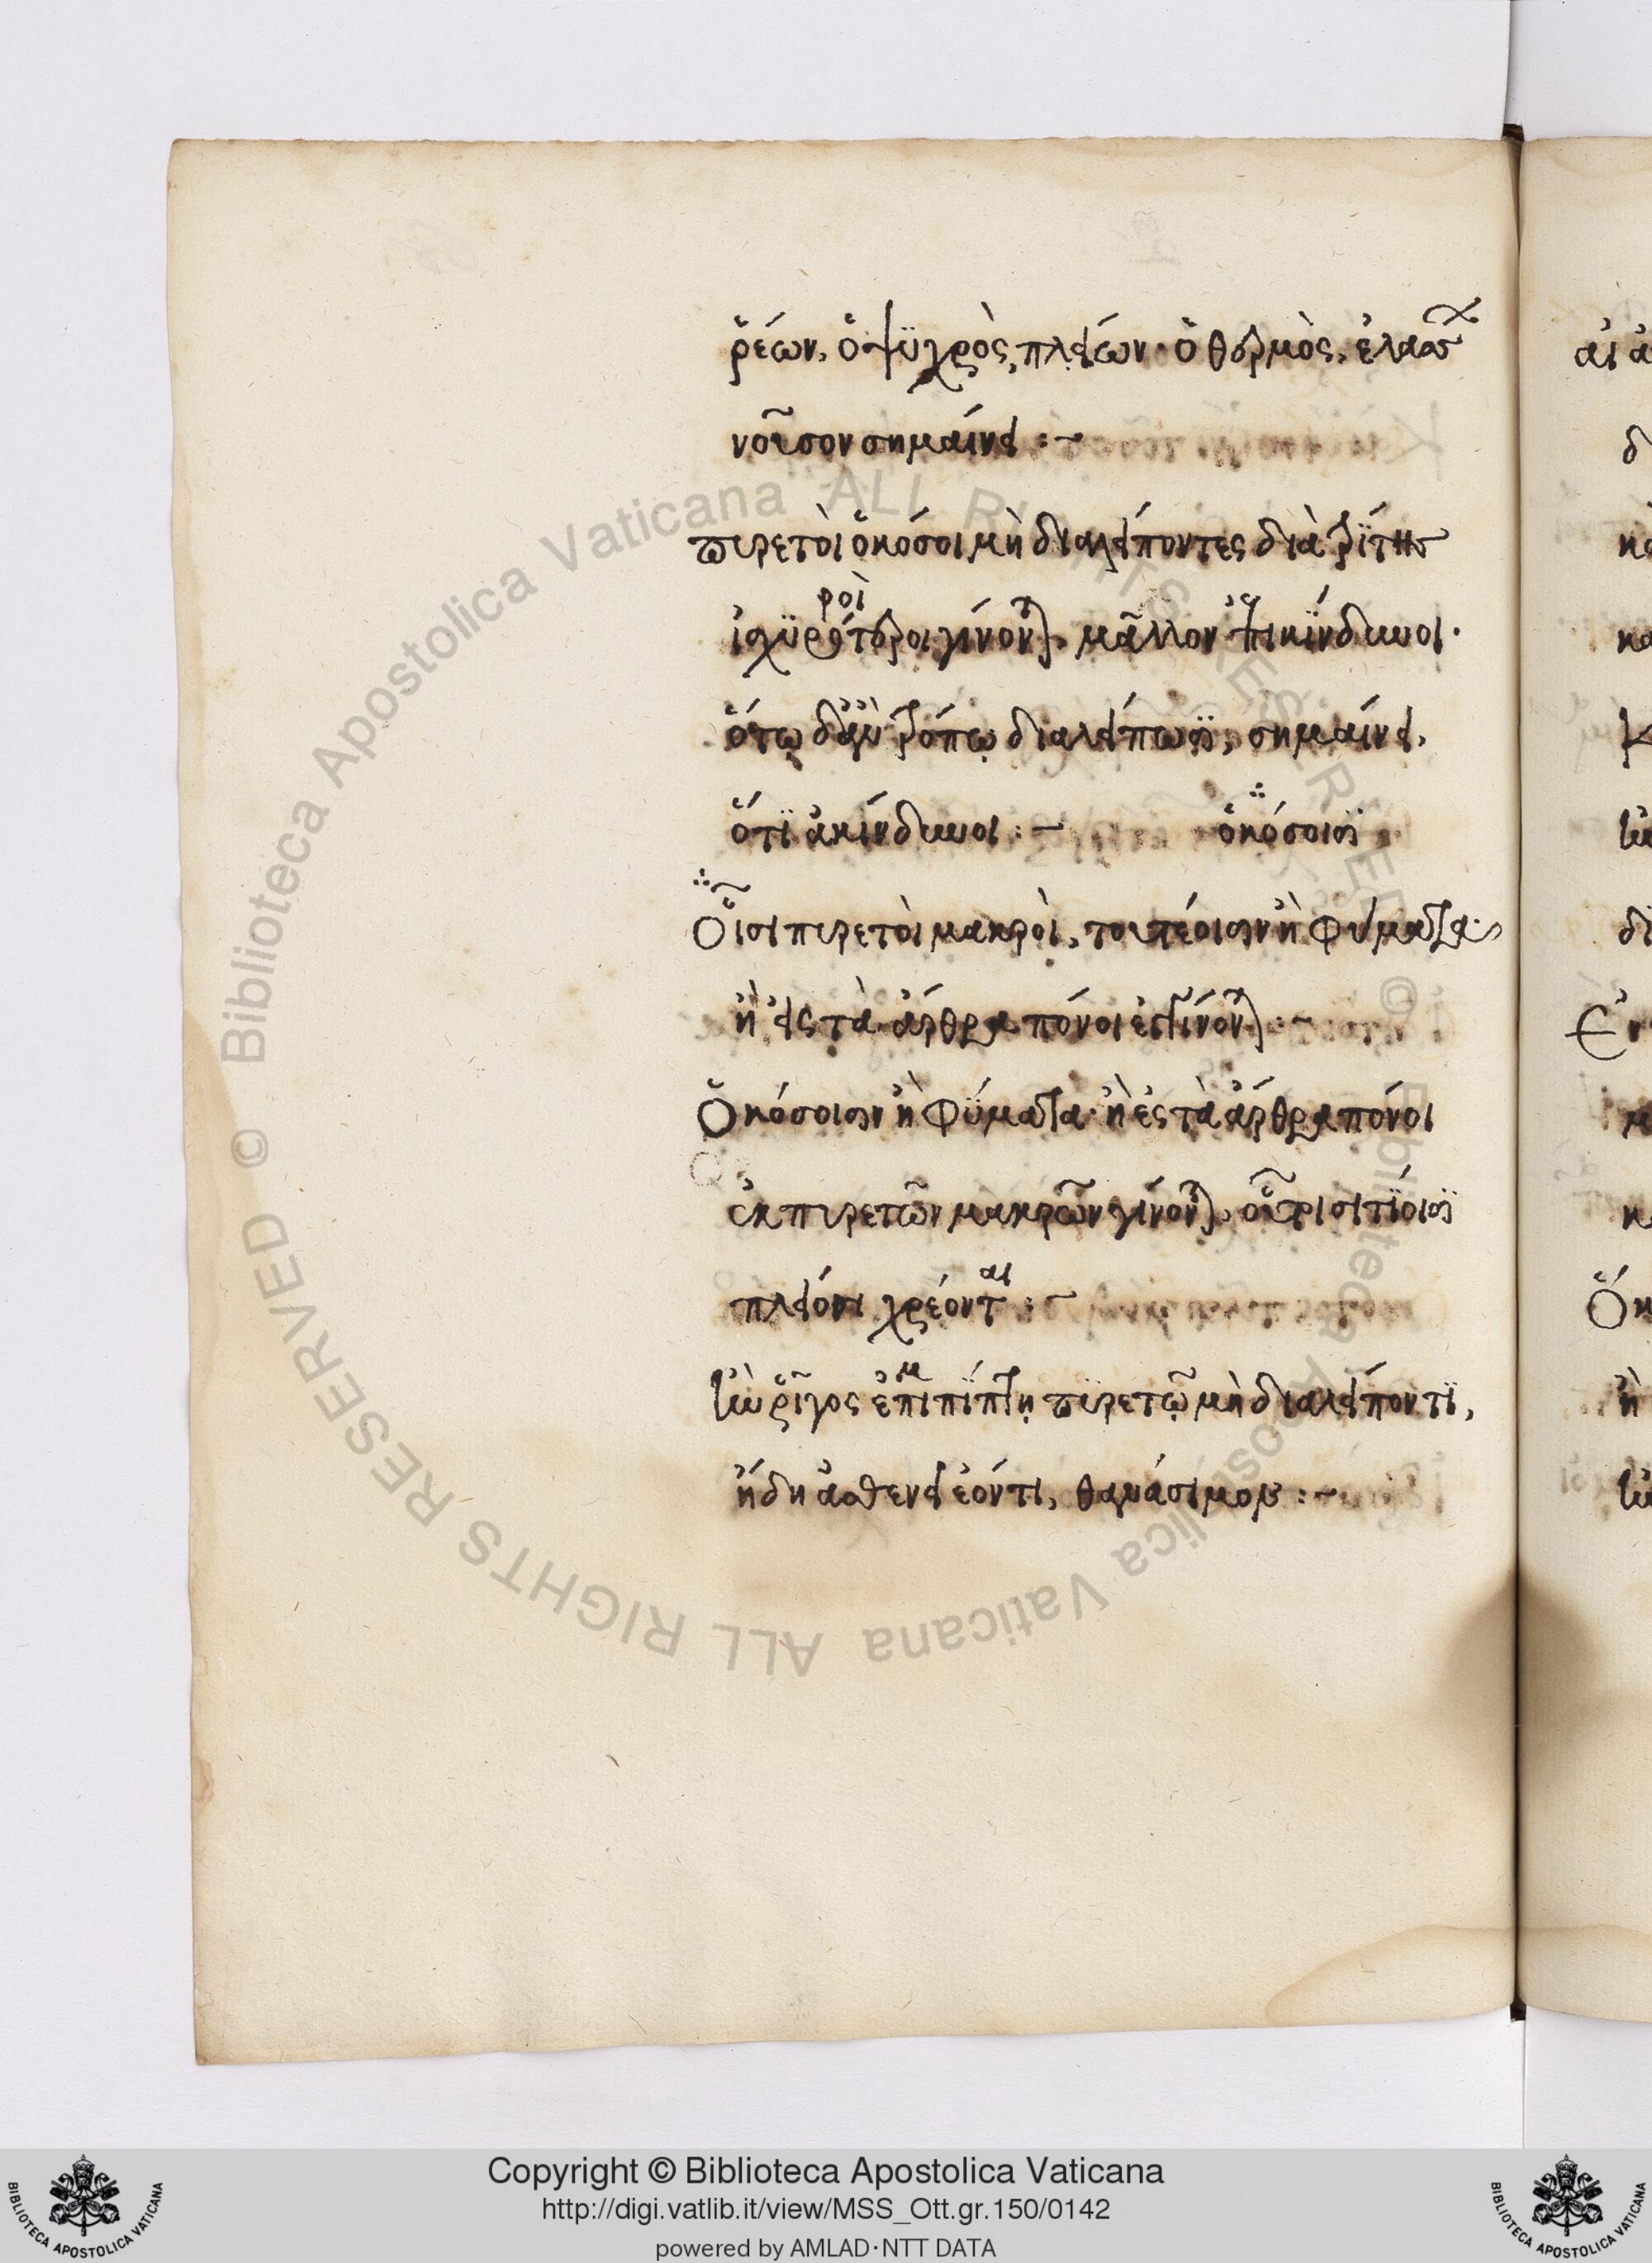 ῥέων, ὁ ψϋχρὸς, πλείων· ὁ θερμὸς, ἐλάσσω
νοῦσον σημαίνει :~
πυρετοὶ ὁκόσοι μὴ διαλείποντες διὰ τρίτης
ροὶ
ἰσχϋρότεροι γίνονται, μᾶλλον ἐπικίνδυνοι·
ὅτῳ δ' ἂν τρόπῳ διαλείπωσϊ, σημαίνει,
ὅτϊ ἀκίνδυνοι :~ ὁκόσοισϊ
Οἷσι πυρετοὶ μακροὶ, τουτέοισιν ἢ φύματα·
ἢ εἰς τὰ ἄρθρα πόνοι ἐγγίνονται :~
Ὁκόσοισιν ἢ φύματα· ἢ ἐς τὰ ἄρθρα πόνοι
ἐκ πυρετῶν μακρῶν γίνονται, οὗτοι σιτίοισϊ
πλείοσι χρέονται :~
Ἢν ῥῖγος ἐμπίπτῃ πυρετῷ μὴ διαλείποντϊ,
ἤδη ἀσθενεῖ ἐόντι, θανάσιμον :~
αἱ
δ
Ἐν
Ὁκ
ἢ
Copyright © Biblioteca Apostolica Vaticana
http://digi.vatlib.it/view/MSS_Ott.gr.150/0142
powered by AMLAD·NTT DATA
BIBLIOTECA APOSTOLICA VATICANA
BIBLIOTECA APOSTOLICA VATICANA
© Biblioteca Apostolica Vaticana ALL RIGHTS RESERVED
© Biblioteca Apostolica Vaticana ALL RIGHTS RESERVED